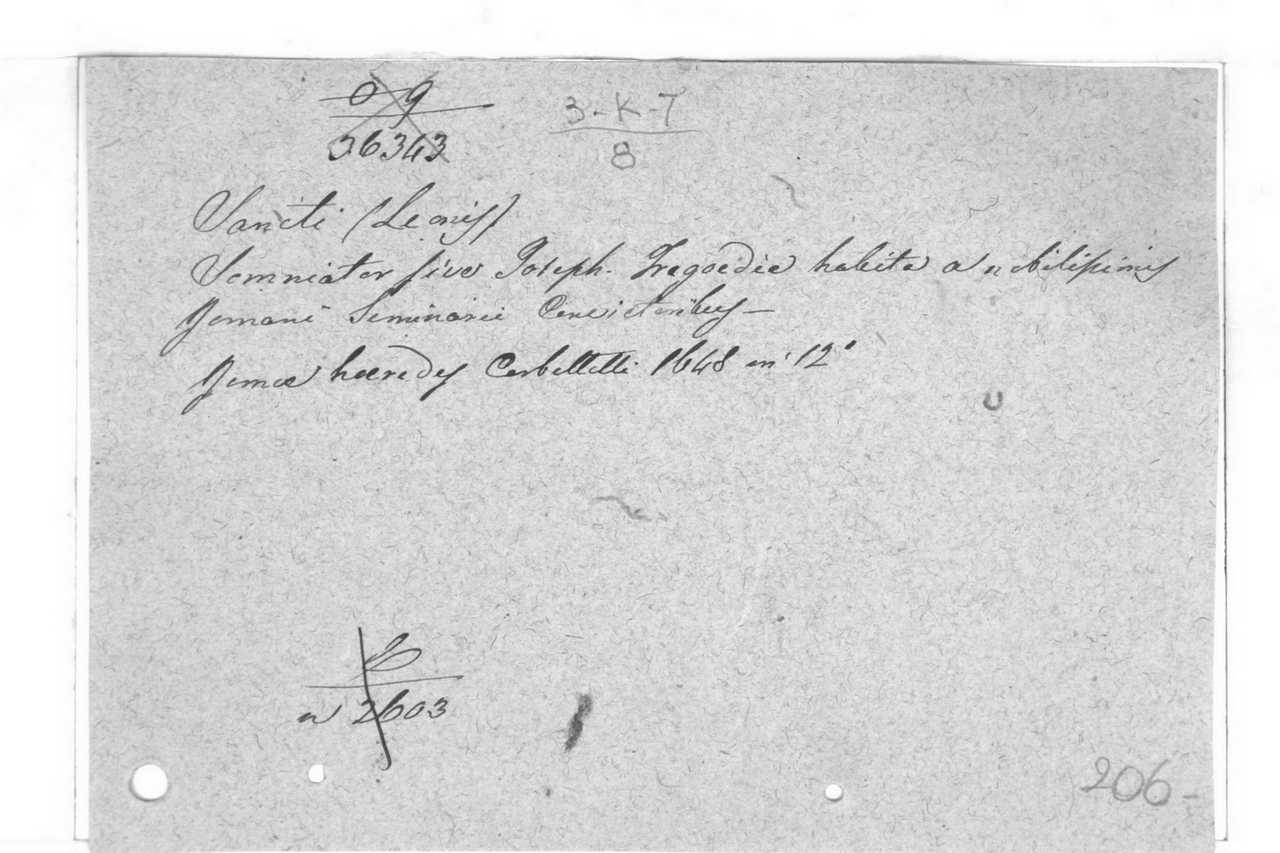 O 9
36343
3-K-7
8
Sancti (Leonis)
Somniator sive Joseph. Tragoedia habita a nobilissimis
Romani Seminarii Convictoribus —
Romae haeredes Corbelletti 1648 in 12°
n 2603
206-